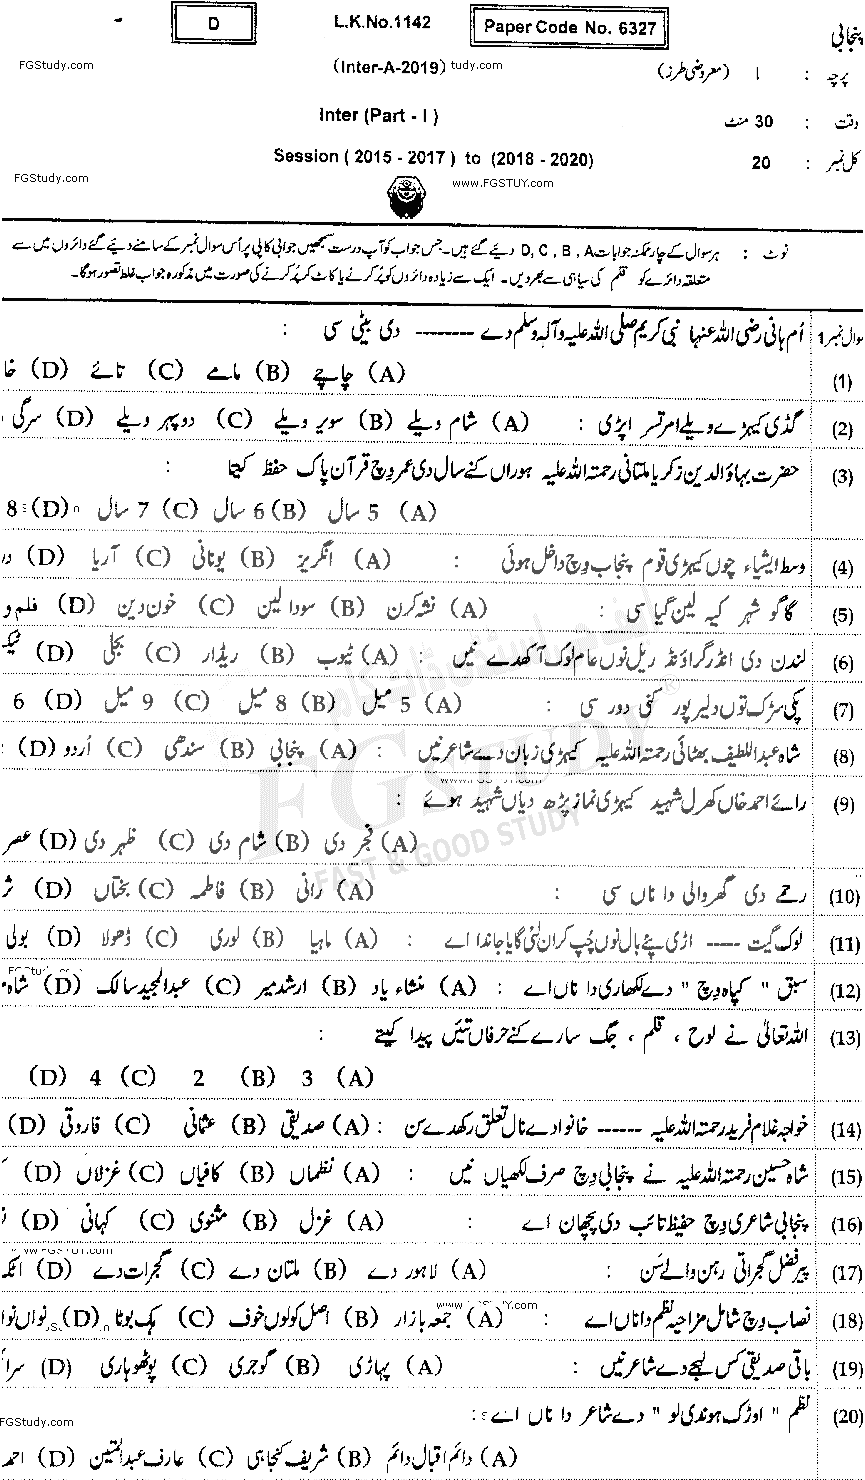 D L.K.No.1142 Paper Code No. 6327 پنجابی
FGStudy.com (Inter-A-2019) tudy.com پرچہ : I (معروضی طرز)
Inter (Part - I) وقت : 30 منٹ
Session ( 2015 - 2017 ) to (2018 - 2020) کل نمبر : 20
FGStudy.com www.FGSTUY.com
نوٹ : ہر سوال کے چار ممکنہ جوابات A ، B ، C ، D دیئے گئے ہیں۔ جس جواب کو آپ درست سمجھیں جوابی کاپی پر اُس سوال نمبر کے سامنے دیئے گئے دائروں میں سے
متعلقہ دائرے کو قلم کی سیاہی سے بھر دیں۔ ایک سے زیادہ دائروں کو پُر کرنے یا کاٹ کر پُر کرنے کی صورت میں مذکورہ جواب غلط تصور ہوگا۔
سوال نمبر 1 اُم ہانی رضی اللہ عنہا نبی کریم صلی اللہ علیہ وآلہ وسلم دے -------- دی بیٹی سی :
(1) (A) چاچے (B) مامے (C) تائے (D)
(2) گڈی کیہڑے ویلے امرتسر اپڑی : (A) شام ویلے (B) سویر ویلے (C) دوپہر ویلے (D) سرگی
(3) حضرت بہاؤالدین زکریا ملتانی رحمتہ اللہ علیہ ہوراں کنے سال دی عمر وچ قرآن پاک حفظ کیتا :
(A) 5 سال (B) 6 سال (C) 7 سال (D) 8
(4) وسط ایشیاء چوں کیہڑی قوم پنجاب وچ داخل ہوئی : (A) انگریز (B) یونانی (C) آریا (D)
(5) گاگو شہر کیہ لین گیا سی : (A) نشہ کرن (B) سودا لین (C) خون دین (D) فلم و
(6) لندن دی انڈر گراؤنڈ ریل نوں عام لوک آکھدے نیں : (A) ٹیوب (B) ریڈار (C) بجلی (D)
(7) پکی سڑک توں دلیر پور کنی دور سی : (A) 5 میل (B) 8 میل (C) 9 میل (D) 6
(8) شاہ عبداللطیف بھٹائی رحمتہ اللہ علیہ کیہڑی زبان دے شاعر نیں : (A) پنجابی (B) سندھی (C) اُردو (D)
(9) رائے احمد خاں کھرل شہید کیہڑی نماز پڑھ دیاں شہید ہوئے :
(A) فجر دی (B) شام دی (C) ظہر دی (D) عصر
(10) رحمے دی گھر والی دا ناں سی : (A) رانی (B) فاطمہ (C) بختاں (D)
(11) لوک گیت ---- اڑی پئے بال نوں چُپ کران لئی گایا جاندا اے : (A) ماہیا (B) لوری (C) ڈھولا (D) بولی
(12) سبق " کپاہ وچ " دے لکھاری دا ناں اے : (A) منشاء یاد (B) ارشد میر (C) عبدالمجید سالک (D) شاہ
(13) اللہ تعالیٰ نے لوح ، قلم ، جگ سارے کنے حرفاں تئیں پیدا کیتے :
(A) 3 (B) 2 (C) 4 (D)
(14) خواجہ غلام فرید رحمتہ اللہ علیہ ------ خانوادے نال تعلق رکھدے سن : (A) صدیقی (B) عثمانی (C) فاروقی (D)
(15) شاہ حسین رحمتہ اللہ علیہ نے پنجابی وچ صرف لکھیاں نیں : (A) نظماں (B) کافیاں (C) غزلاں (D)
(16) پنجابی شاعری وچ حفیظ تائب دی پچھان اے : (A) غزل (B) مثنوی (C) کہانی (D)
(17) پیر فضل گجراتی رہن والے سن : (A) لاہور دے (B) ملتان دے (C) گجرات دے (D) اٹک
(18) نصاب وچ شامل مزاحیہ نظم دا ناں اے : (A) جمعہ بازار (B) اصل کولوں خوف (C) ہک بوٹا (D) نواں نوا
(19) باقی صدیقی کس لہجے دے شاعر نیں : (A) پہاڑی (B) گوجری (C) پوٹھوہاری (D) سرا
(20) نظم " اوڑک ہوندی لو " دے شاعر دا ناں اے :
(A) دائم اقبال دائم (B) شریف کنجاہی (C) عارف عبدالمتین (D) احمد
FGSTUDY
FAST & GOOD STUDY
FGStudy.com